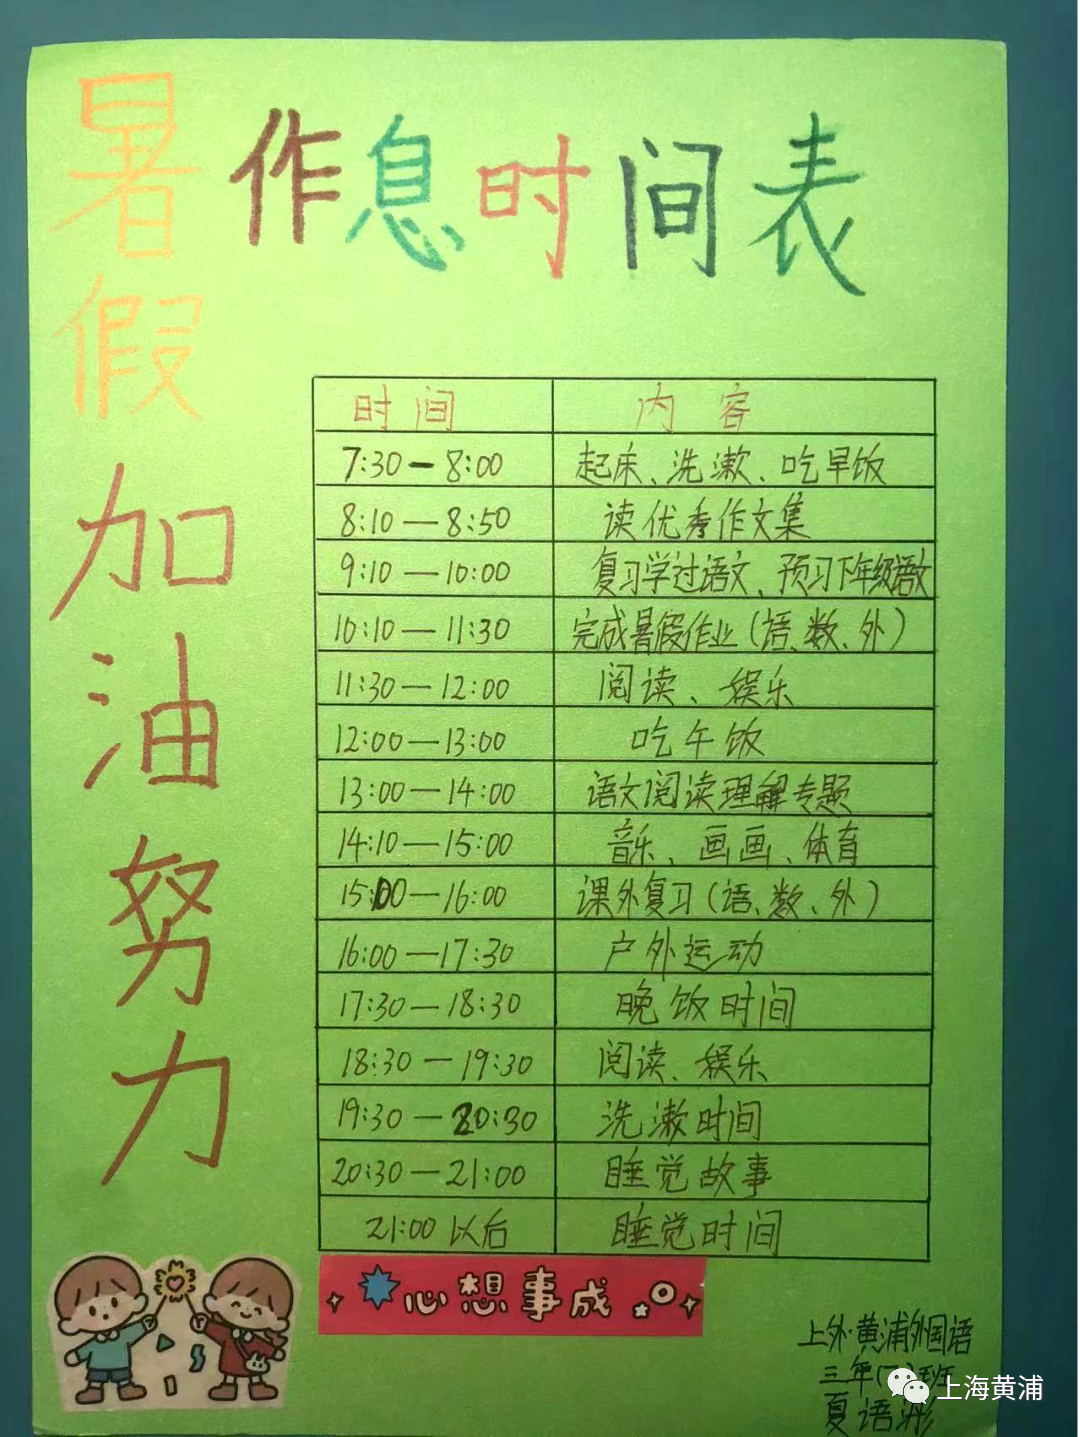 暑假
加油努力
作息时间表
时间 内容
7:30—8:00 起床、洗漱、吃早饭
8:10—8:50 读优秀作文集
9:10—10:00 复习学过语文、预习下年级语文
10:10—11:30 完成暑假作业(语、数、外)
11:30—12:00 阅读、娱乐
12:00—13:00 吃午饭
13:00—14:00 语文阅读理解专题
14:10—15:00 音乐、画画、体育
15:00—16:00 课外复习(语、数、外)
16:00—17:30 户外运动
17:30—18:30 晚饭时间
18:30—19:30 阅读、娱乐
19:30—20:30 洗漱时间
20:30—21:00 睡觉故事
21:00以后 睡觉时间
心想事成
上外·黄浦外国语
三年 班
夏语
上海黄浦